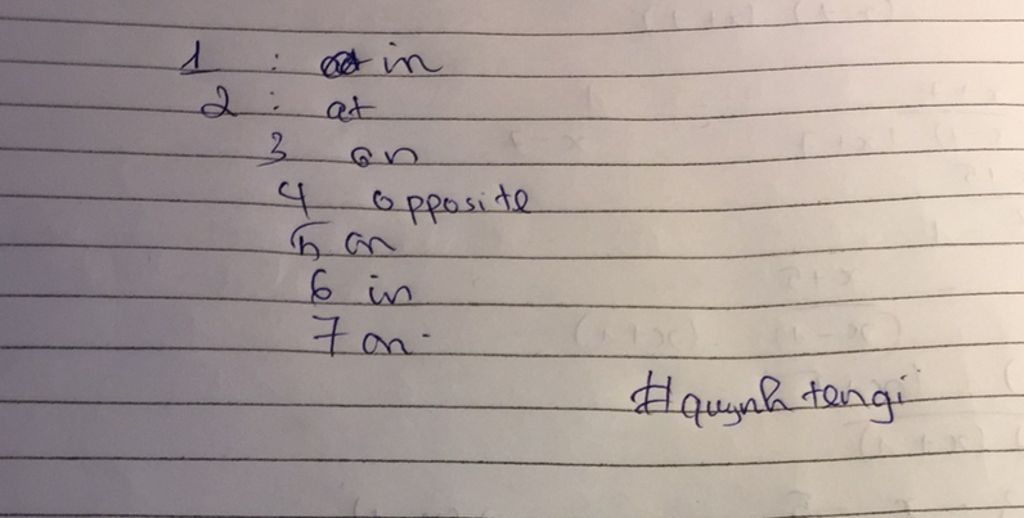 1 : in
2 : at
3 on
4 opposite
5 on
6 in
7 on.
#quynh tengi